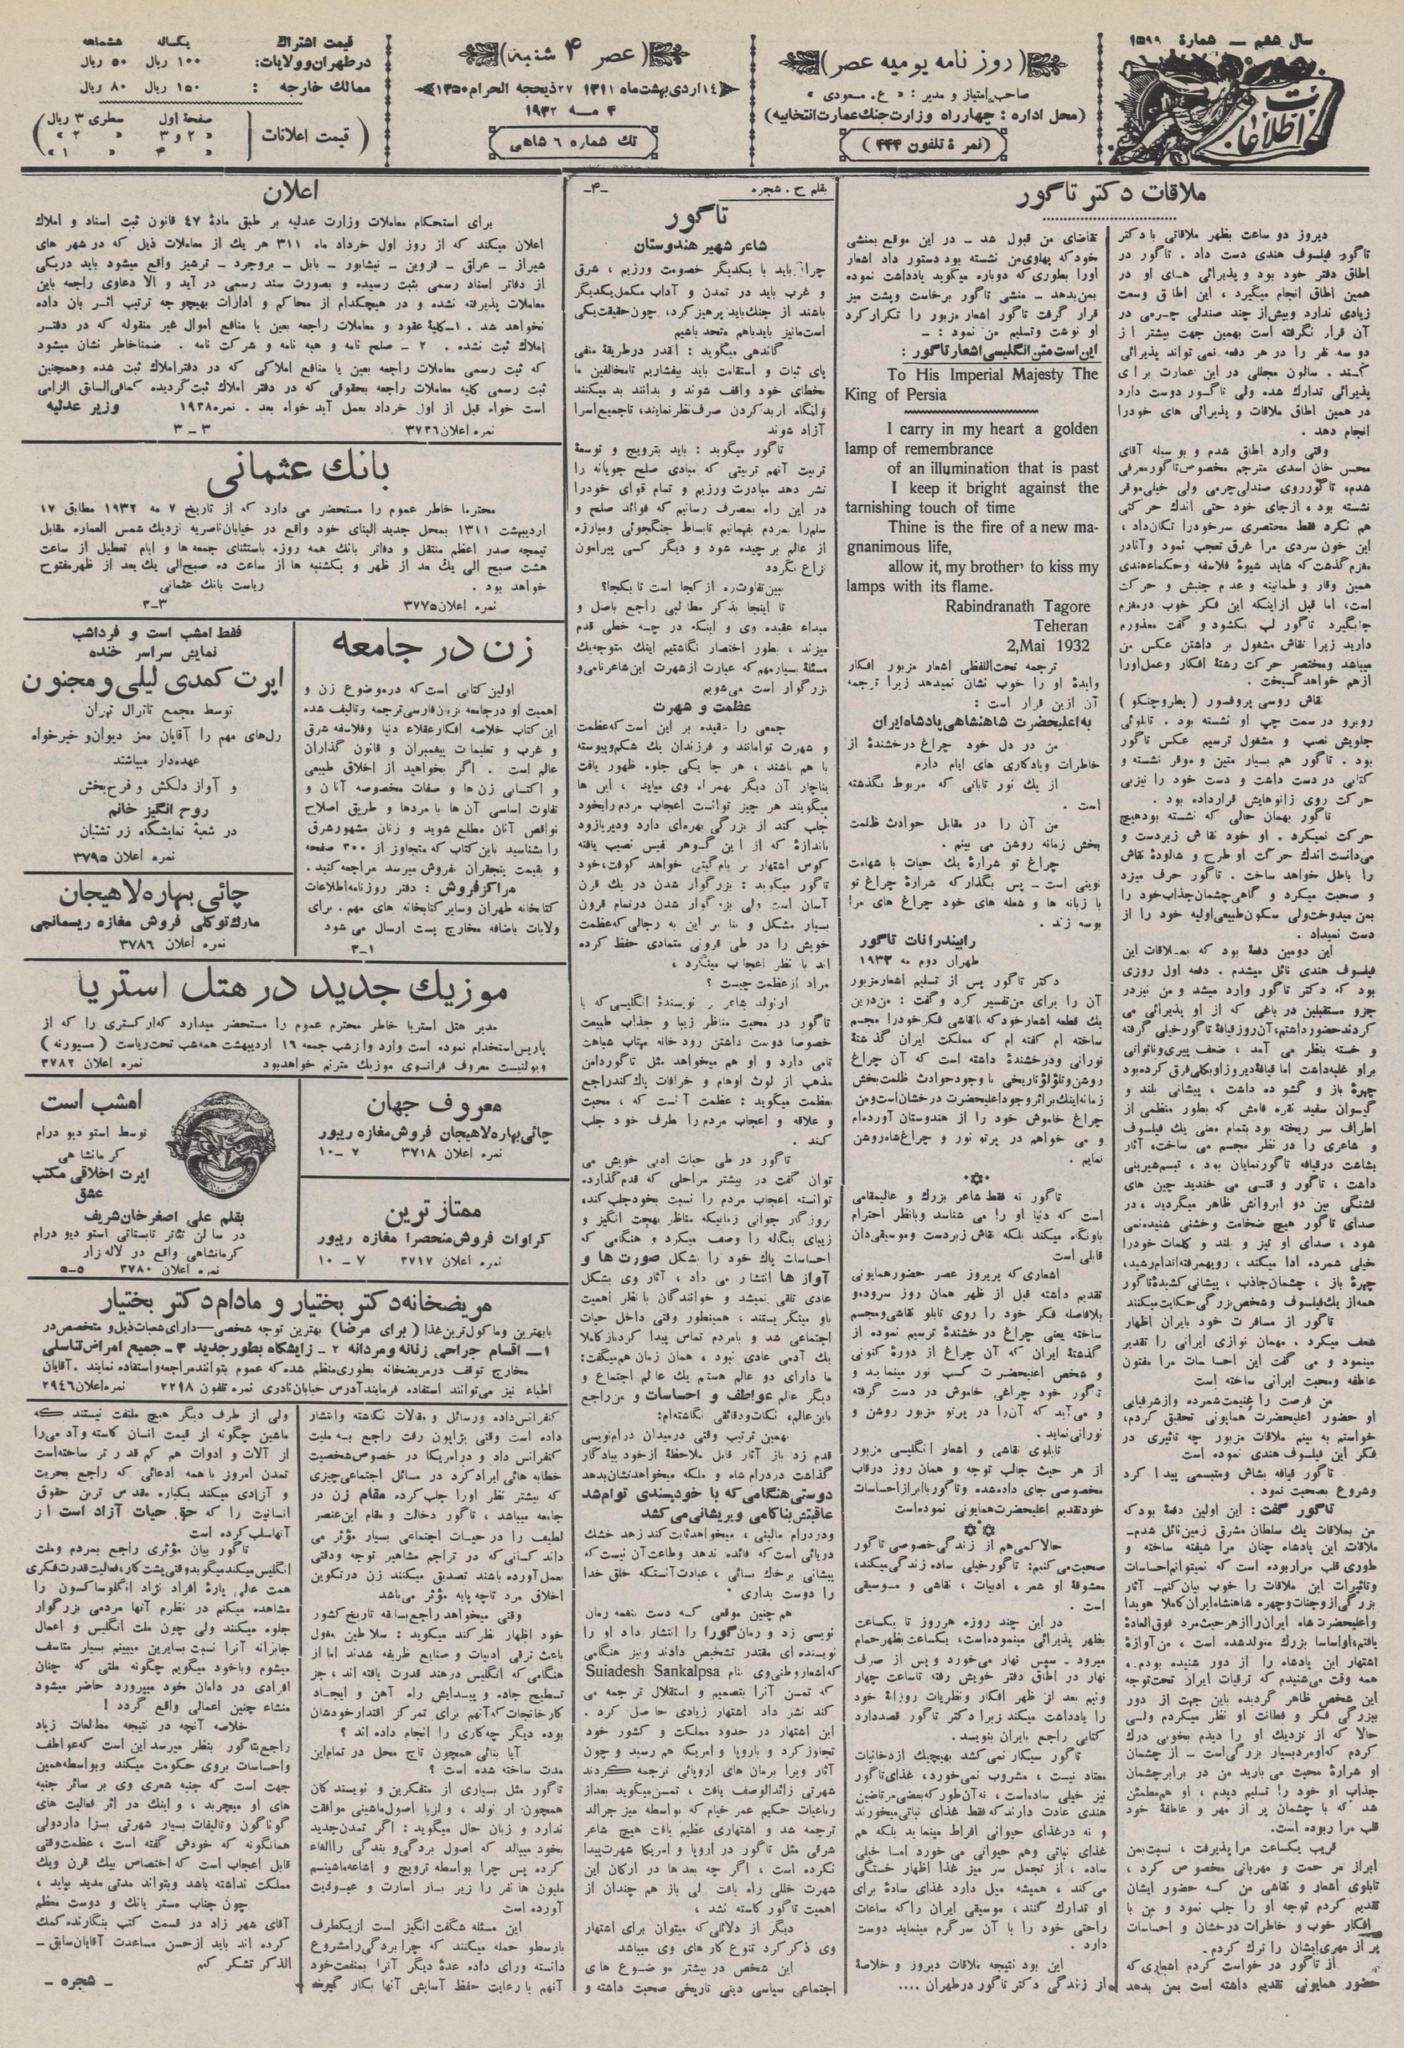 سال ششم — شمارهٔ ۱۵۹۹
اطلاعات
(روزنامه یومیه عصر)
صاحب امتیاز و مدیر : «ع. مسعودی»
(محل اداره : چهارراه وزارت جنك عمارت انتخابیه)
(نمرهٔ تلفون ۴۴۴)
(عصر ۴ شنبه)
۱۴ اردی‌بهشت ماه ۱۳۱۱ ۲۷ ذیحجه الحرام ۱۳۵۰
۴ مه ۱۹۳۲
تك شماره ۶ شاهی
قیمت اشتراك یكساله ششماهه
در طهران و ولایات: ۱۰۰ ریال ۵۰ ریال
ممالك خارجه : ۱۵۰ ریال ۸۰ ریال
(قیمت اعلانات)
صفحهٔ اول سطری ۳ ریال
» ۲ و ۳ » ۲ »
» ۴ » ۱ »
ملاقات دكتر تاگور
دیروز دو ساعت بظهر ملاقاتی با دكتر
تاگور فیلسوف هندی دست داد . تاگور در
اطاق دفتر خود بود و پذیرائی های او در
همین اطاق انجام میگیرد ، این اطاق وسعت
زیادی ندارد و بیش از چند صندلی چرمی در
آن قرار نگرفته است بهمین جهت بیشتر از
دو سه نفر را در هر دفعه نمی تواند پذیرائی
كند . سالون مجللی در این عمارت برای
پذیرائی تدارك شده ولی تاگور دوست دارد
در همین اطاق ملاقات و پذیرائی های خودرا
انجام دهد .
وقتی وارد اطاق شدم و بوسیله آقای
محسن خان اسدی مترجم مخصوص تاگور معرفی
شدم، تاگور روی صندلی چرمی ولی خیلی موقر
نشسته بود ، ازجای خود حتی اندك حركتی
هم نكرد فقط مختصری سرخودرا تكان داد ،
این خون سردی مرا غرق تعجب نمود و آنا در
مغزم گذشت كه شاید شیوهٔ فلاسفه و حكماء هندی
همین وقار و طمانینه و عدم جنبش و حركت
است، اما قبل ازاینكه این فكر خوب در مغزم
جایگیرد تاگور لب بگشود و گفت معذورم
دارید زیرا نقاش مشغول بر داشتن عكس من
میباشد و مختصر حركت رشتهٔ افكار و عمل اورا
ازهم خواهد گسیخت .
نقاش روسی پروفسور ( پطروچنكو )
روبرو در سمت چپ او نشسته بود . تابلوئی
جلویش نصب و مشغول ترسیم عكس تاگور
بود . تاگور هم بسیار متین و موقر نشسته و
كتابی در دست داشت و دست خود را نیز بی
حركت روی زانوهایش قرارداده بود .
تاگور بهمان حالی كه نشسته بود هیچ
حركت نمیكرد . او خود نقاش زبردست و
می‌دانست اندك حركت او طرح و شالودهٔ نقاش
را باطل خواهد ساخت . تاگور حرف میزد
و صحبت میكرد و گاهی چشمان جذاب خود را
بمن میدوخت ولی سكون طبیعی اولیه خود را از
دست نمیداد .
این دومین دفعهٔ بود كه بملاقات این
فیلسوف هندی نائل میشدم . دفعه اول روزی
بود كه دكتر تاگور وارد میشد و من نیز در
جزو مستقبلین در باغی كه از او پذیرائی می
كردند حضور داشتم، آن روز قیافهٔ تاگور خیلی گرفته
و خسته بنظر می آمد ، ضعف پیری و ناتوانی
براو غلبه داشت اما قیافهٔ دیروز او بكلی فرق كرده بود
چهرهٔ باز و گشوده داشت ، پیشانی بلند و
گیسوان سفید نقره فامش كه بطور منظمی از
اطراف سر ریخته بود بتمام معنی یك فیلسوف
و شاعری را در نظر مجسم می ساخت، آثار
بشاشت در قیافه تاگور نمایان بود ، تبسم شیرینی
داشت ، تاگور و قتسی می خندید چین های
قشنگی بین دو ابروانش ظاهر میگردید ، در
صدای تاگور هیچ ضخامت و خشنی شنیده نمی
شود ، صدای او تیز و بلند و كلمات خودرا
خیلی شمرده ادا میكند ، رویهمرفته اندام رشید،
چهرهٔ باز ، چشمان جاذب ، پیشانی كشیدهٔ تاگور
همه از یك فیلسوف و شخص بزرگی حكایت میكنند
تاگور از مسافرت خود بایران اظهار
شعف میكرد . مهمان نوازی ایرانی را تقدیر
مینمود و می گفت این احساسات مرا مفتون
عاطفه و محبت ایرانی ساخته است
من فرصت را غنیمت شمرده و از شرفیابی
او حضور اعلیحضرت همایونی تحقیق كردم،
خواستم به بینم ملاقات مزبور چه تاثیری در
فكر این فیلسوف هندی نموده است
تاگور قیافه بشاش و متبسمی پیدا كرد
و شروع بصحبت نمود .
تاگور گفت : این اولین دفعهٔ بود كه
من بملاقات یك سلطان مشرق زمین نائل شدم -
ملاقات این پادشاه چنان مرا شیفته ساخته و
طوری قلب مرا ربوده است كه نمیتوانم احساسات
و تاثیرات این ملاقات را خوب بیان كنم - آثار
بزرگی از وجنات و چهره شاهنشاه ایران كاملا هویدا
و اعلیحضرت شاه ایران را از هر حیث مرد فوق العادهٔ
یافتم، او اساسا بزرك متولد شده است ، من آوازهٔ
اشتهار این پادشاه را از دور شنیده بودم ،
همه وقت می شنیدم كه ترقیات ایران تحت توجه
این شخص ظاهر گردیده باین جهت از دور
ببزرگی فكر و فطانت او نظر میكردم ولی
حالا كه از نزدیك او را دیدم بخوبی درك
كردم كه او مرد بسیار بزرگی است - از چشمان
او شرارهٔ محبت می بارید من در برابر چشمان
جذاب او خود را تسلیم دیدم ، او هم مطمئن
شد كه با چشمان پر از مهر و عاطفهٔ خود
قلب مرا ربوده است .
قریب یكساعت مرا پذیرفت ، نسبت بمن
ابراز مرحمت و مهربانی مخصوص كرد ،
تابلوی اشعار و نقاشی من كه حضور ایشان
تقدیم كردم توجه او را جلب نمود و من با
افكار خوب و خاطرات درخشان و احساسات
پر از مهری ایشان را ترك كردم.
از تاگور در خواست كردم اشعاری كه
حضور همایونی تقدیم داشته است بمن بدهد
تقاضای من قبول شد - در این موقع بمنشی
خود كه پهلوی من نشسته بود دستور داد اشعار
اورا بطوری كه دوباره میگوید یادداشت نموده
بمن بدهد - منشی تاگور برخاست و پشت میز
قرار گرفت تاگور اشعار مزبور را تكرار كرد
او نوشت و تسلیم من نمود : -
این است متن انگلیسی اشعار تاگور :
To His Imperial Majesty The
King of Persia
I carry in my heart a golden
lamp of remembrance
of an illumination that is past
I keep it bright against the
tarnishing touch of time
Thine is the fire of a new ma-
gnanimous life,
allow it, my brother' to kiss my
lamps with its flame.
Rabindranath Tagore
Teheran
2,Mai 1932
ترجمه تحت‌اللفظی اشعار مزبور افكار
و ایدهٔ او را خوب نشان نمیدهد زیرا ترجمه
آن ازین قرار است :
به اعلیحضرت شاهنشاهی پادشاه ایران
من در دل خود چراغ درخشندهٔ از
خاطرات و یادكاری های ایام دارم
از یك نور تابانی كه مربوط بگذشته
است .
من آن را در مقابل حوادث ظلمت
بخش زمانه روشن می بینم .
چراغ تو شرارهٔ یك حیات با شهامت
نوینی است - پس بگذار كه شرارهٔ چراغ تو
با زبانه ها و شعله های خود چراغ های مرا
بوسه زند .
رابیندرانات تاگور
طهران دوم مه ۱۹۳۲
دكتر تاگور پس از تسلیم اشعار مزبور
آن را برای من تفسیر كرد و گفت : من در این
یك قطعه اشعار خود كه با نقاشی فكر خود را مجسم
ساخته ام گفته ام كه مملكت ایران گذشتهٔ
نورانی و درخشندهٔ داشته است كه آن چراغ
روشن و تلؤلؤ تاریخی با وجود حوادث ظلمت بخش
زمانه اینك براثر وجود اعلیحضرت درخشان است و من
چراغ خاموش خود را از هندوستان آورده‌ام
و می خواهم در پرتو نور و چراغ شاه روشن
نمایم .
تاگور نه فقط شاعر بزرك و عالیمقامی
است كه دنیا او را می شناسد و بانظر احترام
باو نگاه میكند بلكه نقاش زبردست و موسیقی دان
قابلی است
اشعاری كه پریروز عصر حضور همایونی
تقدیم داشته قبل از ظهر همان روز سروده و
بلافاصله فكر خود را روی تابلو نقاشی و مجسم
ساخته یعنی چراغ درخشندهٔ ترسیم نموده از
گذشتهٔ ایران كه آن چراغ از دورهٔ كنونی
و شخص اعلیحضرت كسب نور مینماید و
تاگور خود چراغی خاموش در دست گرفته
و می‌آید كه آن را در پرتو مزبور روشن و
نورانی نماید .
تابلوی نقاشی و اشعار انگلیسی مزبور
از هر حیث جالب توجه و همان روز در قاب
مخصوصی جای داده شده و تاگور با ابراز احساسات
خود تقدیم اعلیحضرت همایونی نموده است
حالا كمی هم از زندگی خصوصی تاگور
صحبت می كنیم: تاگور خیلی ساده زندگی میكند،
معشوقهٔ او شعر ، ادبیات ، نقاشی و موسیقی
است .
در این چند روزه هر روز تا یكساعت
بظهر پذیرائی مینموده است، یكساعت بظهر حمام
میرود . سپس نهار می‌خورد و پس از صرف
نهار در اطاق دفتر خویش رفته تا ساعت چهار
و نیم بعد از ظهر افكار و نظریات روزانهٔ خود
را یادداشت میكند زیرا دكتر تاگور قصد دارد
كتابی راجع بایران بنویسد .
تاگور سیگار نمی كشد بهیچیك از دخانیات
معتاد نیست ، مشروب نمی خورد، غذای تاگور
نیز خیلی ساده است، نه آن طور كه بعضی مرتاضین
هندی عادت دارند كه فقط غذای نباتی میخورند
و نه در غذای حیوانی افراط مینماید بلكه هم
غذای نباتی و هم حیوانی می خورد اما خیلی
ساده ، از تجمل سر میز غذا اظهار خستگی
می كند ، همیشه میل دارد غذای سادهٔ برای
او تدارك كنند ، موسیقی ایران را كه ساعات
راحتی خود را با آن سرگرم مینماید دوست
دارد .
این بود نتیجه ملاقات دیروز و خلاصهٔ
از زندگی دكتر تاگور در طهران ....
بقلم ح . شجره
-۳-
تاگور
شاعر شهیر هندوستان
چرا باید با یكدیگر خصومت ورزیم ، شرق
و غرب باید در تمدن و آداب مكمل یكدیگر
باشند از جنك باید پرهیز كرد، چون حقیقت یكی
است ما نیز باید باهم متحد باشیم
گاندهی میگوید : انقدر در طریقهٔ منفی
پای ثبات و استقامت باید بیفشاریم تا مخالفین ما
بخطای خود واقف شوند و بدانند بد میكنند
وانگاه از بد كردن صرف نظر نمایند، تا جمیع اسرا
آزاد شوند
تاگور میگوید : باید بترویج و توسعهٔ
تربیت آنهم تربیتی كه مبادی صلح جویانه را
نشر دهد مبادرت ورزیم و تمام قوای خودرا
در این راه بمصرف رسانیم كه فوائد صلح و
سلم را بمردم بفهمانیم تا بساط جنگجوئی و مبارزه
از عالم بر چیده شود و دیگر كسی پیرامون
نزاع نگردد
ببین تفاوت ره از كجا است تا بكجا؟
تا اینجا بذكر مطالبی راجع باصل و
مبداء عقیده وی و اینكه در چه خطی قدم
میزند ، بطور اختصار نگاشتیم اینك متوجه یك
مسئلهٔ بسیار مهم كه عبارت از شهرت این شاعر نامی و
بزرگوار است می‌شویم
عظمت و شهرت
جمعی را عقیده بر این است كه عظمت
و شهرت توامانند و فرزندان یك شكم و پیوسته
با هم باشند ، هر جا یكی جلوه ظهور یافت
بناچار آن دیگر بهمراه وی میاید ، این ها
میگویند هر چیز توانست اعجاب مردم را بخود
جلب كند از بزرگی بهره‌ای دارد و دیر یا زود
باندازهٔ كه از این گوهر نفیس نصیب یافته
كوس اشتهار بر بام گیتی خواهد كوفت، خود
تاگور میگوید : بزرگوار شدن در یك قرن
آسان است ولی بزرگوار شدن در تمام قرون
بسیار مشكل و بنا بر این به رجالی كه عظمت
خویش را در طی قرونی متمادی حفظ كرده
اند با نظر اعجاب مینگرد ،
مراد از عظمت چیست ؟
ارنولد شاعر و نویسندهٔ انگلیسی كه با
تاگور در محبت مناظر زیبا و جذاب طبیعت
خصوصا دوست داشتن رود خانه مهتاب شباهت
تامی دارد و او هم میخواهد مثل تاگور دامن
مذهب از لوث اوهام و خرافات پاك كند راجع
بعظمت میگوید : عظمت آنست كه ، محبت
و علاقه و اعجاب مردم را طرف خود جلب
كند .
تاگور در طی حیات ادبی خویش می
توان گفت در بیشتر مراحلی كه قدم گذارد،
توانسته اعجاب مردم را نسبت بخود جلب كند،
روزگار جوانی زمانیكه مناظر بهجت انگیز و
زیبای بنگاله را وصف میكرد و هنگامی كه
احساسات پاك خود را بشكل صورت ها و
آواز ها انتشار می داد ، آثار وی بشكل
عادی تلقی نمیشد و خوانندگان با نظر اهمیت
باو مینگریستند ، همینطور وقتی داخل حیات
اجتماعی شد و بامردم تماس پیدا كرد باز كاملا
یك آدمی عادی نبود ، همان زمان هم میگفت:
ما دارای دو عالم هستم یك عالم اجتماع و
دیگر عالم عواطف و احساسات و من راجع
باین عالم، نكات و دقائقی نگاشته‌ام:
بهمین ترتیب وقتی درمیدان درام نویسی
قدم زد باز آثار قابل ملاحظهٔ ازخود بیادگار
گذاشت در درام شاه و ملكه میخواهد نشان بدهد
دوستی هنگامی كه با خودپسندی توام شد
عاقبتش بناكامی و پریشانی می كشد
و در درام مالینی ، میخواهد ثابت كند زهد خشك
دریائی است كه فائده ندهد و طاعت آن نیست كه
پیشانی بر خاك بسائی ، عبادت آنستكه خلق خدا
را دوست بداری ،
هم چنین موقعی كه دست بنغمه رمان
نویسی زد و رمان گورا را انتشار داد او را
نویسنده ای مقتدر تشخیص دادند و نیز هنگامی
كه اشعار وطنی وی بنام Suiadesh Sankalpsa
كه تمسن آنرا بتصمیم و استقلال ترجمه می
كند نشر داد اشتهار زیادی حاصل كرد .
این اشتهار در حدود مملكت و كشور خود
تجاوز كرد و باروپا و امریكا هم رسید و چون
آثار ویرا بزمان های اروپائی ترجمه كردند
شهرتی زائدالوصف یافت ، تمسن میگوید بعد از
رباعیات حكیم عمر خیام كه بواسطه فیز جرالد
ترجمه شد و اشتهاری عظیم یافت هیچ شاعر
شرقی مثل تاگور در اروپا و امریكا شهرت پیدا
نكرده است ، اگر چه بعد ها در اركان این
شهرت خللی راه یافت ولی باز هم چندان از
اهمیت تاگور كاسته نشد ،
دیگر از دلائلی كه میتوان برای اشتهار
وی ذكر كرد تنوع كار های وی میباشد
این شخص در بیشتر موضوع های
اجتماعی سیاسی دینی تاریخی صحبت داشته و
اعلان
برای استحكام معاملات وزارت عدلیه بر طبق مادهٔ ۴۷ قانون ثبت اسناد و املاك
اعلان میكند كه از روز اول خرداد ماه ۳۱۱ هر یك از معاملات ذیل كه در شهر های
شیراز - عراق - قزوین - نیشابور - بابل - بروجرد - ترشیز واقع میشود باید در یكی
از دفاتر اسناد رسمی بثبت رسیده و بصورت سند رسمی در آید و الا دعاوی راجعه باین
معاملات پذیرفته نشده و در هیچكدام از محاكم و ادارات بهیچوجه ترتیب اثر بان داده
نخواهد شد . ۱- كلیهٔ عقود و معاملات راجعه بعین یا منافع اموال غیر منقوله كه در دفتر
املاك ثبت نشده . ۲ - صلح نامه و هبه نامه و شركت نامه . ضمنا خاطر نشان میشود
كه ثبت رسمی معاملات راجعه بعین یا منافع املاكی كه در دفتر املاك ثبت شده و همچنین
ثبت رسمی كلیه معاملات راجعه بحقوقی كه در دفتر املاك ثبت گردیده كمافی‌السابق الزامی
است خواه قبل از اول خرداد بعمل آید خواه بعد . نمره ۱۹۳۸ وزیر عدلیه
نمره اعلان ۳۷۲۶ ۳ - ۳
بانك عثمانی
محترما خاطر عموم را مستحضر می دارد كه از تاریخ ۷ مه ۱۹۳۲ مطابق ۱۷
اردیبهشت ۱۳۱۱ بمحل جدید البنای خود واقع در خیابان ناصریه نزدیك شمس العماره مقابل
تیمچه صدر اعظم منتقل و دفاتر بانك همه روزه باستثنای جمعه ها و ایام تعطیل از ساعت
هشت صبح الی یك بعد از ظهر و یكشنبه ها از ساعت ده صبح الی یك بعد از ظهر مفتوح
خواهد بود . ریاست بانك عثمانی
نمره اعلان ۳۷۷۵ ۳-۲
زن در جامعه
اولین كتابی است كه در موضوع زن و
اهمیت او در جامعه بزبان فارسی ترجمه و تالیف شده
این كتاب خلاصه افكار عقلاء دنیا و فلاسفه شرق
و غرب و تعلیمات پیغمبران و قانون گذاران
عالم است . اگر بخواهید از اخلاق طبیعی
و اكتسابی زن ها و صفات مخصوصه آنان و
تفاوت اساسی آن ها با مردها و طریق اصلاح
نواقص آنان مطلع شوید و زنان مشهور شرق
را بشناسید باین كتاب كه متجاوز از ۳۰۰ صفحه
و بقیمت پنجقران بفروش میرسد مراجعه كنید .
مراكز فروش : دفتر روزنامه اطلاعات
كتابخانه طهران و سایر كتابخانه های مهم . برای
ولایات باضافه مخارج پست ارسال می شود
۳-۱
فقط امشب است و فرداشب
نمایش سراسر خنده
اپرت كمدی لیلی و مجنون
توسط مجمع تئاترال تهران
رل‌های مهم را آقایان معز دیوان و خیرخواه
عهده‌دار میباشند
و آواز دلكش و فرح بخش
روح انگیز خانم
در شعبهٔ نمایشگاه زرتشتیان
نمره اعلان ۳۷۹۵
چائی بهاره لاهیجان
مارك توكلی فروش مغازه ریسمانچی
نمره اعلان ۳۷۸۶
موزیك جدید در هتل استریا
مدیر هتل استریا خاطر محترم عموم را مستحضر میدارد كه اركستری را كه از
پاریس استخدام نموده است وارد و از شب جمعه ۱۶ اردیبهشت همه شب تحت ریاست ( مسیورنه )
ویولنیست معروف فرانسوی موزیك مترنم خواهد بود نمره اعلان ۳۷۸۲
معروف جهان
چائی بهاره لاهیجان فروش مغازه ریپور
نمره اعلان ۳۷۱۸ ۷ - ۱۰
ممتاز ترین
كراوات فروش منحصرا مغازه ریپور
نمره اعلان ۳۷۱۷ ۷ - ۱۰
امشب است
توسط استودیو درام
كرمانشاهی
اپرت اخلاقی مكتب
عشق
بقلم علی اصغر خان شریف
در سالن تئاتر تابستانی استودیو درام
كرمانشاهی واقع در لاله زار
نمره اعلان ۳۷۸۰ ۵-۵
مریضخانه دكتر بختیار و مادام دكتر بختیار
با بهترین و ماكول‌ترین غذا ( برای مرضا ) بهترین توجه شخصی - دارای شعبات ذیل و متخصص در
۱- اقسام جراحی زنانه و مردانه ۲ - زایشگاه بطور جدید ۳ - جمیع امراض تناسلی
مخارج توقف در مریضخانه بطوری منظم شده كه عموم بتوانند مراجعه و استفاده نمایند . آقایان
اطباء نیز می‌توانند استفاده فرمایند آدرس خیابان نادری نمره تلفون ۲۲۹۸ نمره اعلان ۲۹۴۶
كنفرانس داده و رسائل و مقالات نگاشته و انتشار
داده است وقتی بژاپون رفت راجع به ملیت
كنفرانس داد و در امریكا در خصوص شخصیت
خطابه هائی ایراد كرد در مسائل اجتماعی چیزی
كه بیشتر نظر اورا جلب كرده مقام زن در
جامعه میباشد ، تاگور دخالت و مقام این عنصر
لطیف را در حیات اجتماعی بسیار مؤثر می
داند كسانی كه در تراجم مشاهیر توجه و دقتی
بعمل آورده باشند تصدیق میكنند زن در تكوین
اخلاق مرد تا چه پایه مؤثر می‌باشد
وقتی میخواهد راجع بسابقه تاریخ كشور
خود اظهار نظر كند میگوید : سلاطین مغول
باعث ترقی ادبیات و صنایع ظریفه شدند اما از
هنگامی كه انگلیس در هند قدرت یافته اند ، جز
تسطیح جاده و پیدایش راه آهن و ایجاد
كارخانجات كه آنهم برای تمركز اقتدار خودشان
بوده دیگر چه كاری را انجام داده اند ؟
آیا بنائی همچون تاج محل در تمام این
مدت ساخته شده است ؟
تاگور مثل بسیاری از متفكرین و نویسندگان
همچون ارنولد ، و لزیا اصول ماشینی موافقت
ندارد و زبان حال میگوید : اگر تمدن جدید
بخود میبالد كه اصول بردگی و بندگی را الغاء
كرده پس چرا بواسطه ترویج و اشاعه ماشینسم
ملیون ها نفر را زیر بار اسارت و عبودیت
آورده است
این مسئله شگفت انگیز است از یكطرف
بارسطو حمله میكنند كه چرا بردگی را مشروع
دانسته و رای داده عدهٔ دیگر آنرا بمنفعت خود
آنهم با رعایت حفظ آسایش آنها بكار گیرند
ولی از طرف دیگر هیچ ملتفت نیستند كه
ماشین چگونه از قیمت انسان كاسته و آدمی را
از آلات و ادوات هم كم قدر تر ساخته است
تمدن امروز با همه ادعائی كه راجع بحریت
و آزادی میكند یكباره مقدس ترین حقوق
انسانیت را كه حق حیات آزاد است از
آنها سلب كرده است
تاگور بیان مؤثری راجع بمردم و ملت
انگلیس میكند میگوید وقتی پشت كار، فعالیت قدرت فكری
همت عالی پارهٔ افراد نژاد انگلوساكسون را
مشاهده میكنم در نظرم آنها مردمی بزرگوار
جلوه میكنند ولی چون ملت انگلیس و اعمال
جابرانه آنرا نسبت بسایرین میبینم بسیار متاسف
میشوم و باخود میگویم چگونه ملتی كه چنان
افرادی در دامان خود میپرورد حاضر میشود
منشاء چنین اعمالی واقع گردد !
خلاصه آنچه در نتیجه مطالعات زیاد
راجع بتاگور بنظر میرسد این است كه عواطف
و احساسات بروی حكومت میكند و بواسطه همین
جهت است كه جنبه شعری وی بر سائر جنبه
های او میچربد ، و اینك در اثر فعالیت های
گوناگون و تالیفات بسیار شهرتی بسزا دارد ولی
همانگونه كه خودش گفته است ، عظمت وقتی
قابل اعجاب است كه اختصاص بیك قرن و یك
مملكت نداشته باشد و بتواند مدتی مدید بپاید ،
چون جناب مستر یانك و دوست معظم
آقای شهر زاد در قسمت كتب بنگارنده كمك
كرده اند باید از حسن مساعدت آقایان سابق -
الذكر تشكر كنم
- شجره -